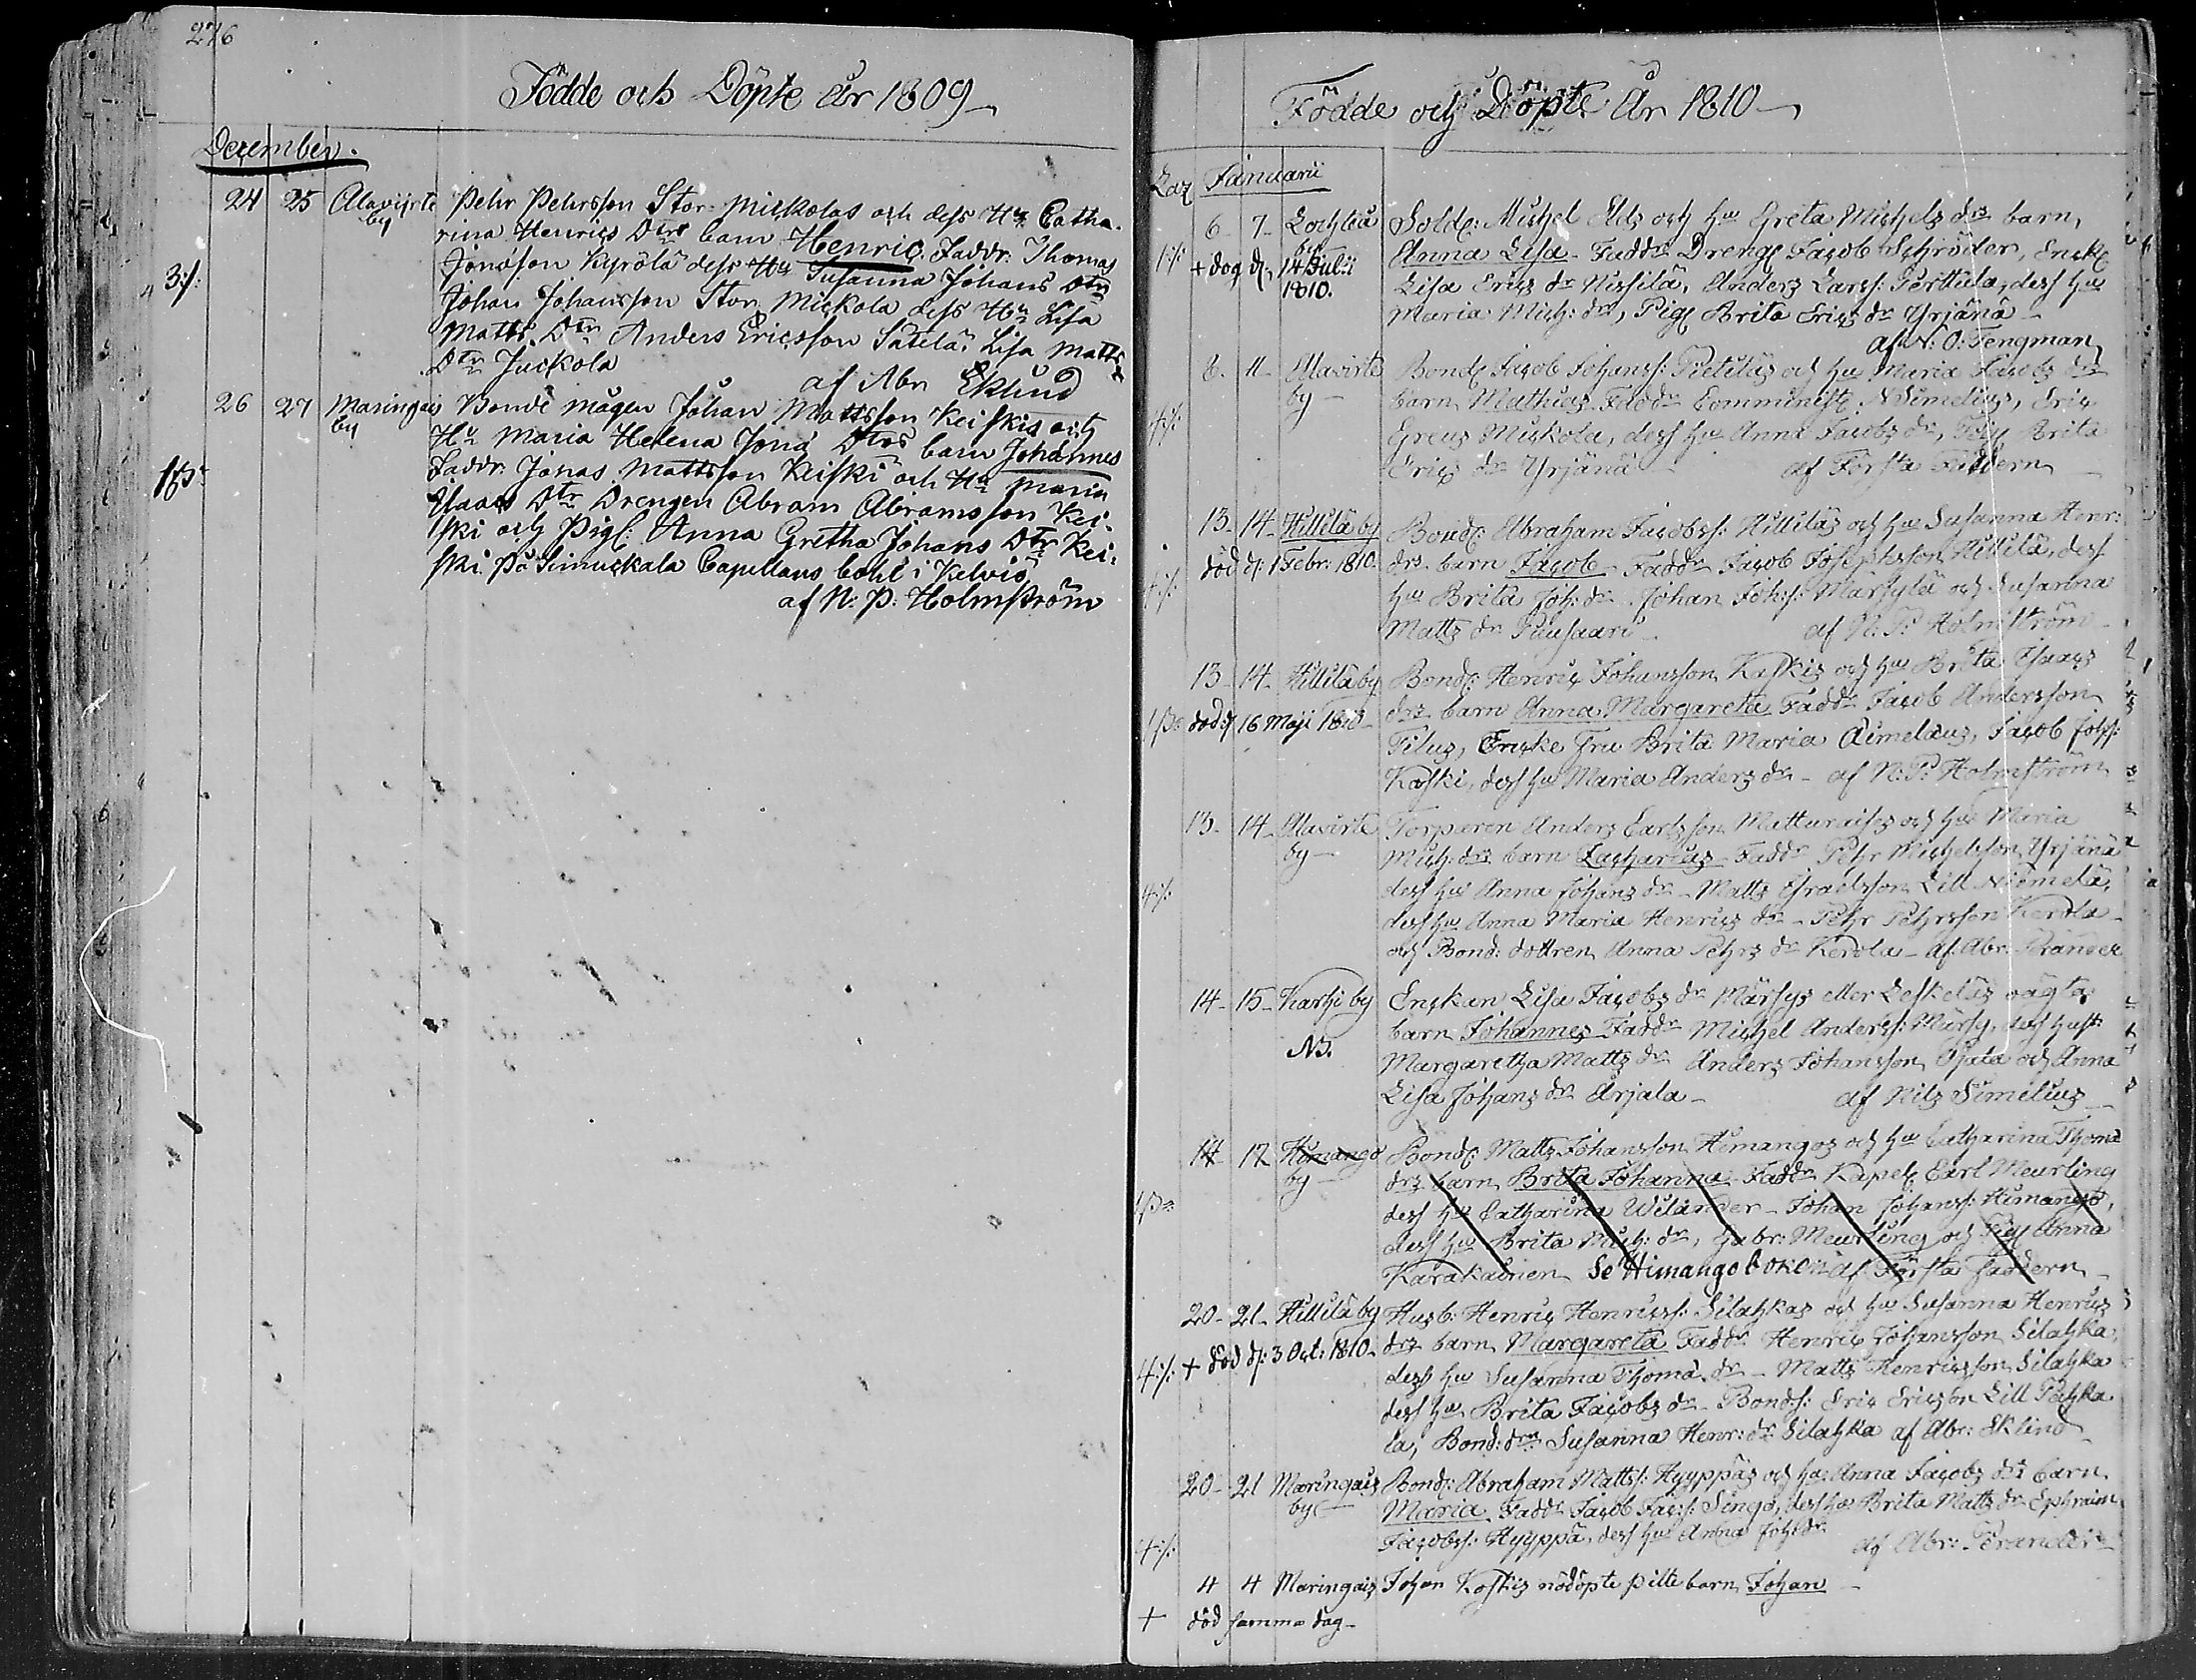 276
Födde och Döpte År 1809
December.
24 25 Alavijrte by
Pehr Pehrsson Stor Mickolas och dess Hu Catha-
rina Henrics Dtrs barn Henric. Faddr. Thomas
3:/: Jonasson Kyrölä dess Hu Susanna Johans Dtr
Johan Johansson Stor Mickola dess Hu Lisa
Matts Dtr Anders Ericsson Lisa Matts
Dtr Juckola
af Abr Eklund
26 27 Maringais by
Bonde mågen Johan Mattsson Keiskis och
Hu Maria Helena Jona Dtrs barn Johannes
Faddr: Jonas Mattsson Keiski och Hu Maria
Isaacs Dtr Drengen Abram Abramsson Kei-
ski och Pig: Anna Gretha Johans Dtr Kei-
ski. På Simuckala Capellans bohl i Kelviö
af N: P: Holmström
Födde och Döpte År 1810
Januarii
6 7 Lochteå by
Sold: Michel och hu Greta Michels drs barn,
Anna Lisa Faddr Dreng Jacob Schröder, Enck
+ dog d. 14 Julii 1810.
Lisa Erics dr Nissilä, Anders Larss: Perttula, dess hu
Maria Mich: dr, Pig Brita Erics dr Yrjänä
af N: O: Tengman
8 11 Alavirte by
Bond Jacob Johanss: Pietiläs och hu Maria Jacobs drs
barn Mathias Faddr Comminist. N Simelius, Eric
Greus Mickola, dess hu Anna Jacobs dr, Pig Brita
Erics dr Yrjänä af Första Faddern
13 14 Hillilä by
Bond: Abraham Jacobss: Hilliläs och hu Susanna Henr:
död d: 1 Febr: 1810.
drs barn Jacob Faddr Jacob Josephsson Hillilä, dess
4:/: hu Brita Joh: dr Johan Joh:s: Märsylä och Susanna
Matts dr Puusaari af N. P. Holmström
13 14 Hillilä by
Bond: Henric Johansson Kaskis och hu Brita Isaacs
död d 16 Maji 1810
drs barn Anna Margareta Faddr Jacob Andersson
Pilus, Encke Fru Brita Maria Aimelæus, Jacob Johss:
Kaski, dess hu Maria Anders dr af N: P: Holmström
13 14 Alavirte by
Torparen Anders Carlsson Matturaises och hu Maria
Mich: drs barn Zacharias Faddr Pehr Michelsson Yrjänä
4:/: dess hu Anna Johans dr Matts Israelsson Lill Niemelä,
dess hu Anna Maria Henrics dr Pehr Pehrsson Kerola
och Bond: dottren Anna Pehrs dr Kerola af Abr: Peranders
14 15 Karhi by
Enckan Lisa Jacobs dr Märsys eller Leskeläs oägta
barn Johannes Faddr Michel Anderss: Märsy, dess hust:
N3.
Margaretha Matts dr Anders Johansson Ojala och Anna
Lisa Johans dr Arjala af Nils Simelius
14 17 Himango by
Bond: Matts Johansson Himangos och hu Catharina Thomæ
drs barn Brita Johanna Faddr Kapel Carl Meurling
dess hu Catharina Wilander Johan Johanss: Himango,
dess hu Brita Mich: dr, Gabr: Meurling och Pig Anna
Karakainen Se Himango boken af Första Faddern
20 21 Hillilä by
Husb: Henric Henricss: Silahkas och hu Susanna Henrics
4:/: + död d: 3 Oct: 1810
drs barn Margareta Faddr Henric Johansson Silahka,
dess hu Susanna Thomæ dr Matts Henricsson Silahka
dess hu Brita Jacobs dr Bonds: Eric Ericsson Lill Pahka
la, Bond: drn Susanna Henr: dr Silahka af Abr: Eklind
20 21 Maringais by
Bond: Abraham Mattss: Hyyppäs och hu Anna Jacobs drs barn
Maria Faddr Jacob Jac:s: Singo, dess hu Brita Matts dr Ephraim
4:/: Jacobss: Hyyppä, dess hu Anna Joh: dr
af Abr: Perander
4 4 Maringais
Johan Koskis nödöpte pilte barn Johan
+ död samma dag